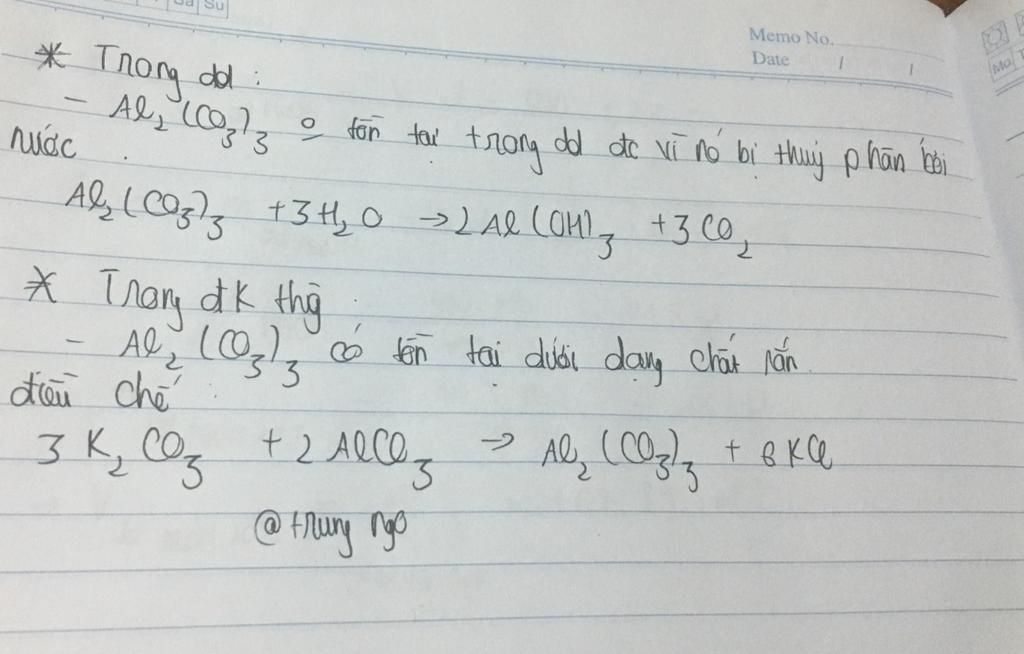 Sa Su
Memo No.
Date / /
Mo
* Trong dd :
- Al₂(CO₃)₃ o tồn tại trong dd đc vì nó bị thuỷ phân bởi
nước .
Al₂(CO₃)₃ + 3H₂O → 2Al(OH)₃ + 3CO₂
* Trong đk thg
- Al₂(CO₃)₃ có tồn tại dưới dạng chất rắn
điều chế :
3K₂CO₃ + 2AlCl₃ → Al₂(CO₃)₃ + 6KCl
@trung ngo